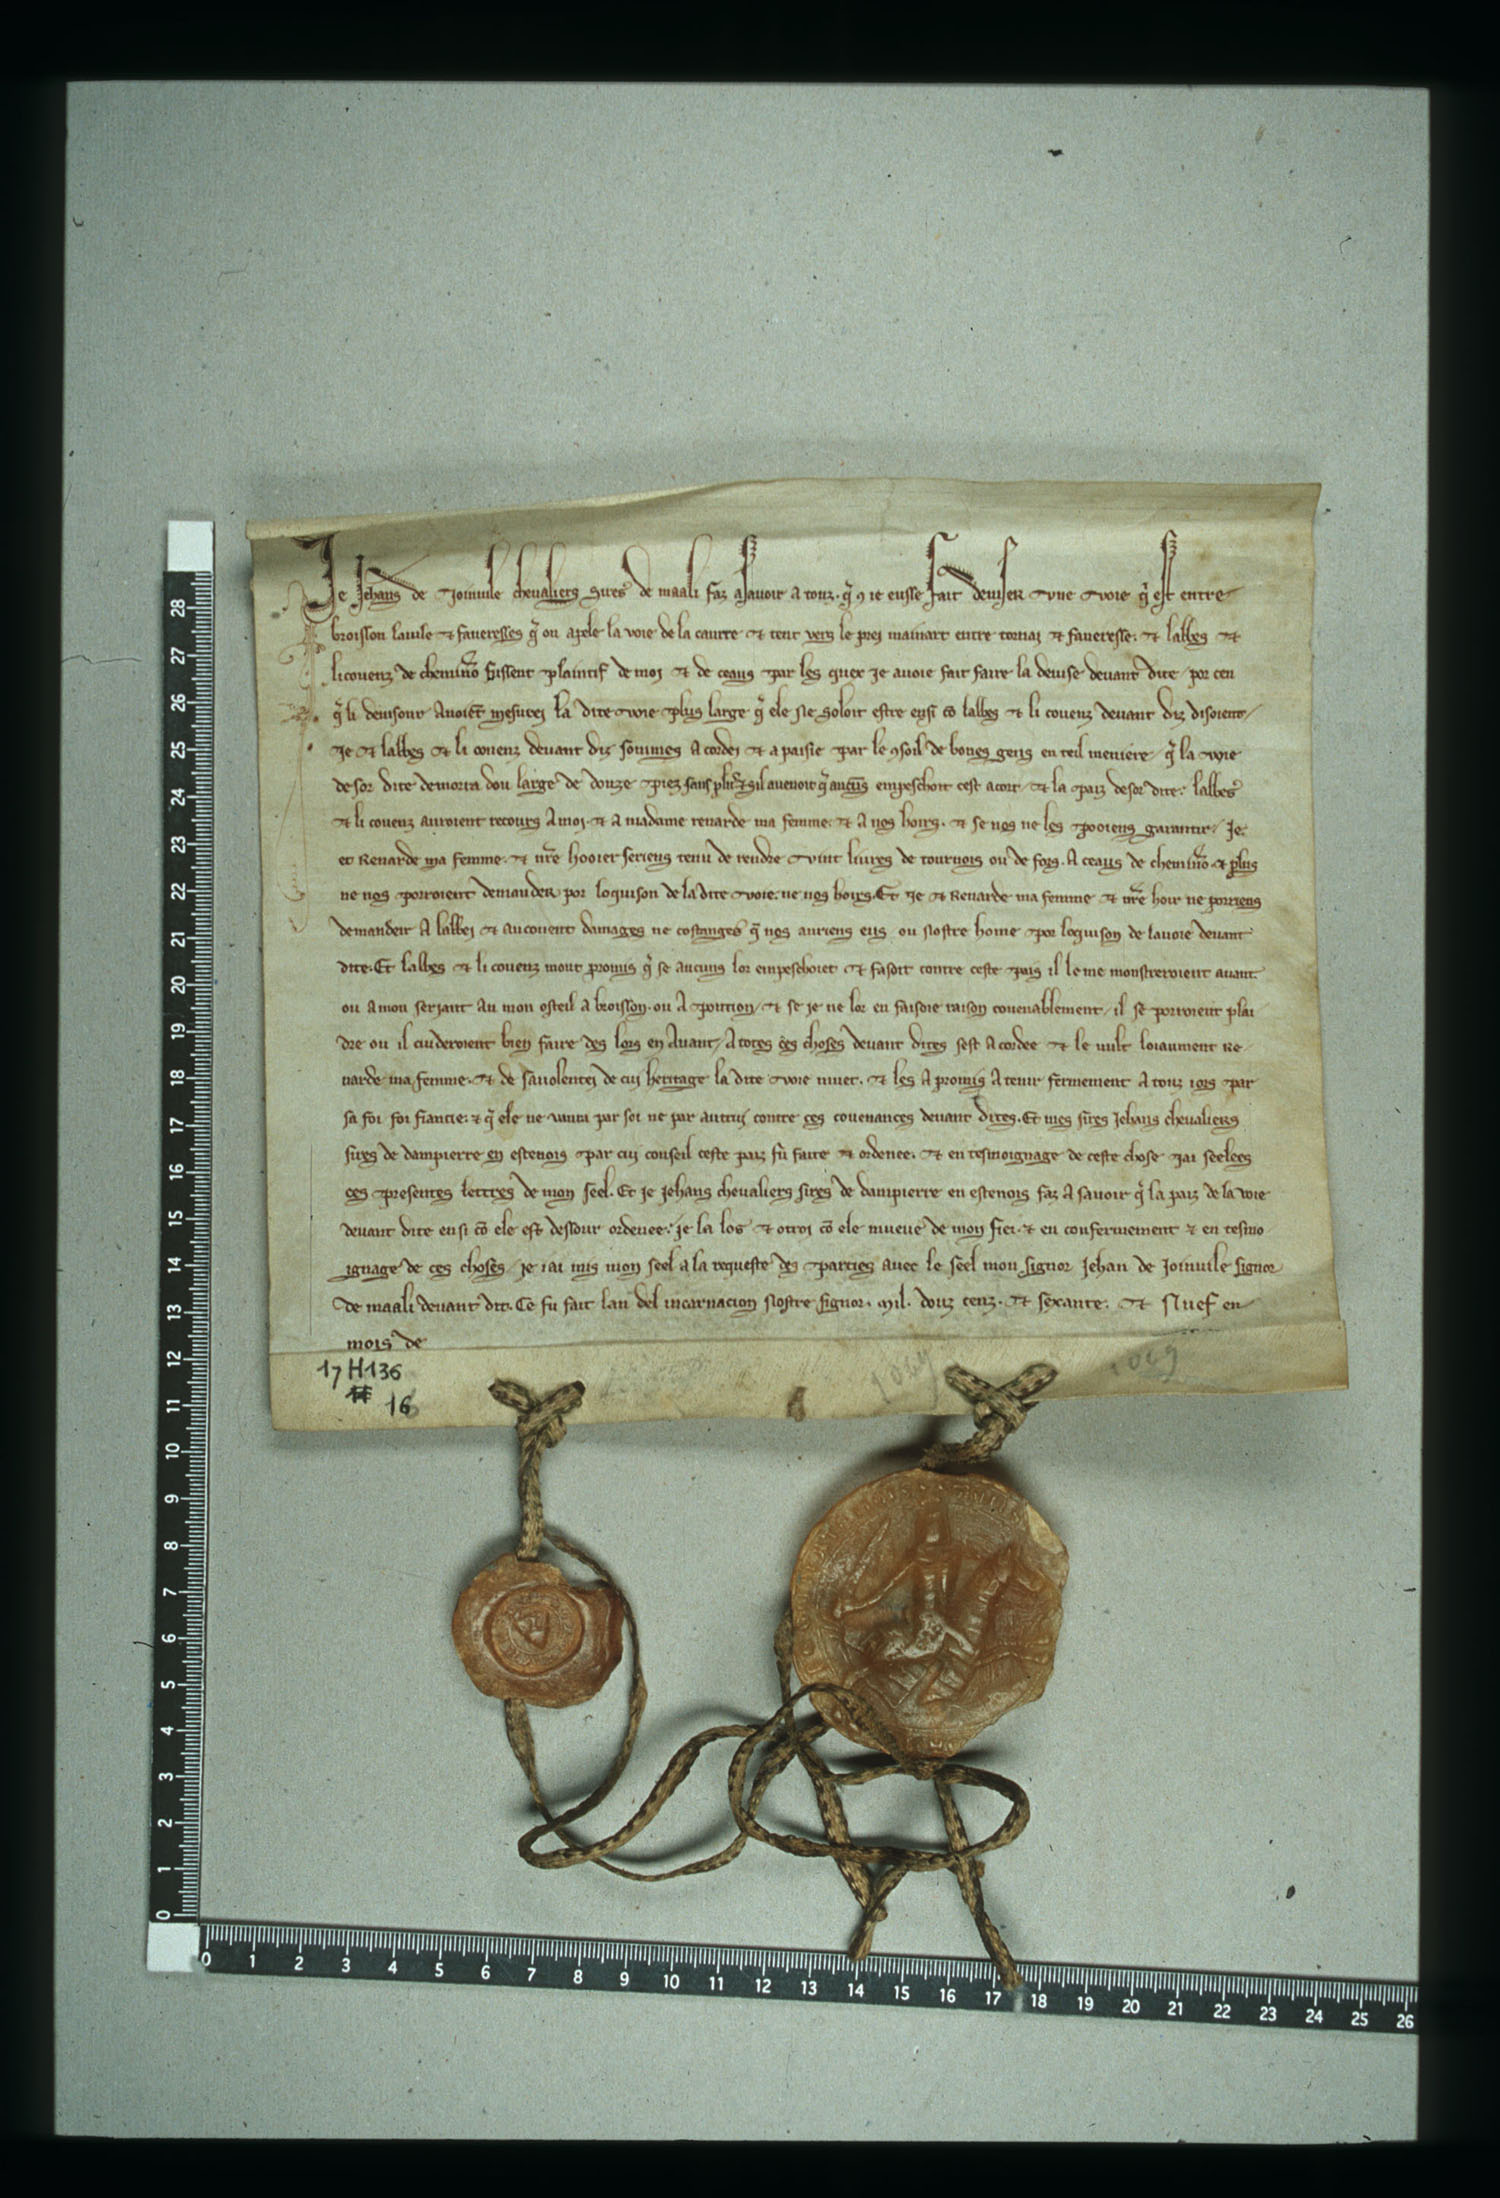 Je Jehans de Joinuile cheualiers Sires de maali faz asauoir a touz. q̃ 9 ie eusse fait deuiser vne voie q̃ est entre
broisson lauile & faueresses q̃ on apele la voie de la caurre & tent vers le prei mainart entre tornai & faueresse. & labbes &
li couenz de chemino fissent plaintif de moi & de ceaus par les quex Je auoie fait faire la deuise deuant dite / por ceu
q̃ li deuisour Auoiēt mesurei la dite voie plus large q̃ ele Ne Soloit estre ensi cō labbes & li couenz deuant diz disoient /
Je & labbes & li couenz deuant diz sommes Acordei & apaisie par le 9soil de bones gens en teil meniere / q̃ la voie
desor dite demorra dou large de douze piez sans plus. & sil auenoit q̃ aucūs empeschoit cest acort / & la paiz desor dite: labbes
& li couenz auroient recours A moi. & A madame renarde ma femme. & A nos hoirs. & se nos ne les pooiens garantir / Je.
et Renarde ma femme. & nr̃e hooir seriens tenu de rendre vint liures de tournois ou de fors. A ceaus de chemino. & plus
ne nos porroient demander por loquison de la dite voie. ne nos hoirs. Et Je & Renarde ma femme & nr̃e hoir ne porriens
demandeir A labbei & au couent damages ne costanges q̃ nos auriens eus ou Nostre home por loquison de lauoie deuant
dite. Et labbes & li couenz mont promis q̃ se aucuns lor empeschoiet & fasoit contre ceste pais il le me monstreroient auant.
ou amon seriant au mon osteil a broisson. ou A / & se je ne lor en faisoie raison couenablement / il se porroient plai
dre ou il cuideroient bien faire des lors en Auant / A totes ces choses deuant dites sest Acordee & le vult loiaument Re
narde ma femme. & de sauolentei de cui heritage la dite voie muet. & les A promis A tenir fermement A touz iors par
sa foi foi fiancie. & q̃ ele ne vanra par soi ne par autrui contre ces couenances deuant dites. Et mes sires Jehans cheualiers
sires de dampierre en estenois par cui conseil ceste paiz fu faite & ordenee. & en tesmoignage de ceste chose Jai seelees
ces presentes lettres de mon seel. Et Je Jehans cheualiers sires de dampierre en estenois faz A sauoir q̃ la paiz de la voie
deuant dite ensi cō ele est dessour ordenee: Je la los & otroi cō ele mueue de mon fiei. & en confermement & en tesmo
ignage de ces choses / Je iai mis mon seel a la requeste des parties auec le seel mon signor Jehan de Joinuile signor
de maali deuant dit. Ce fu fait lan del incarnacion Nostre signor. Mil. douz cenz. & sexante. & Nuef en
mois de
17 H 136
16